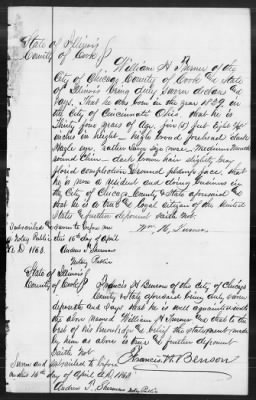 State of Illinois
County of Cook
William H Turner of the
City of Chicago County of Cook & State
of Illinois being duly sworn declares &
says, that he was born in the year 1829 in
the City of Cincinnati Ohio, that he is
Thirty four years of Age, five (5) feet Eight
inches in height high broad forehead dark
Hazle eye, rather large nose, Medium Mouth
round Chin dark brown hair slightly gray
florid complexion round face, that
he is now a resident and doing business in
the City of Chicago County & State aforesaid &
that he is a true & loyal citizen of the United
States & further deponent saith not.
Subscribed & sworn to before me Wm H. Turner
a Notary Public this 16th day of April
A D 1863. Andrew Sherman
Notary Public
State of Illinois
County of Cook
Francis H Benson of the City of Chicago
County & State aforesaid being duly sworn
deposeth and says that he is well acquainted with
the above named William H Turner and that to the
best of his knowledge & belief the statement made
by him as above is true & further deponent
saith not
Francis H. Benson
Sworn and subscribed before
me this 16th day of April A.D. 1863
Andrew Sherman Notary Public